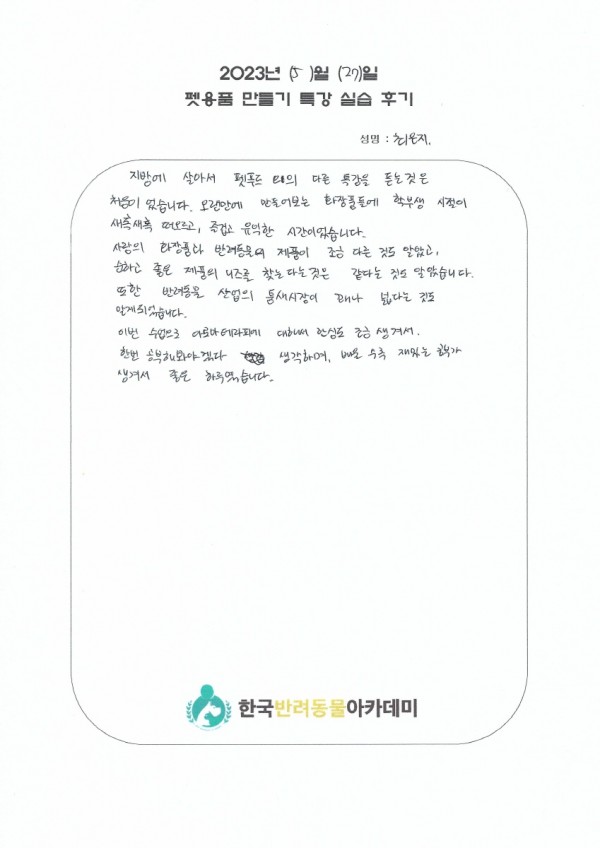 2023년 (5)월 (27)일
펫용품 만들기 특강 실습 후기
성명 : 최은지.
지방에 살아서 펫푸드 외의 다른 특강을 듣는것은
처음이었습니다. 오랜만에 만들어보는 화장품들에 학부생 시절이
새록새록 떠오르고, 즐겁고 유익한 시간이었습니다.
사람의 화장품과 반려동물의 제품이 조금 다른 것도 알았고,
순하고 좋은 제품의 니즈를 찾는다는것은 같다는 것도 알았습니다.
또한 반려동물 산업의 틈새시장이 꽤나 넓다는 것도
알게되었습니다.
이번 수업으로 아로마테라피에 대해서 관심도 조금 생겨서.
한번 공부해봐야겠다 생각하며, 배울 수록 재밌는 공부가
생겨서 좋은 하루였습니다.
한국반려동물아카데미